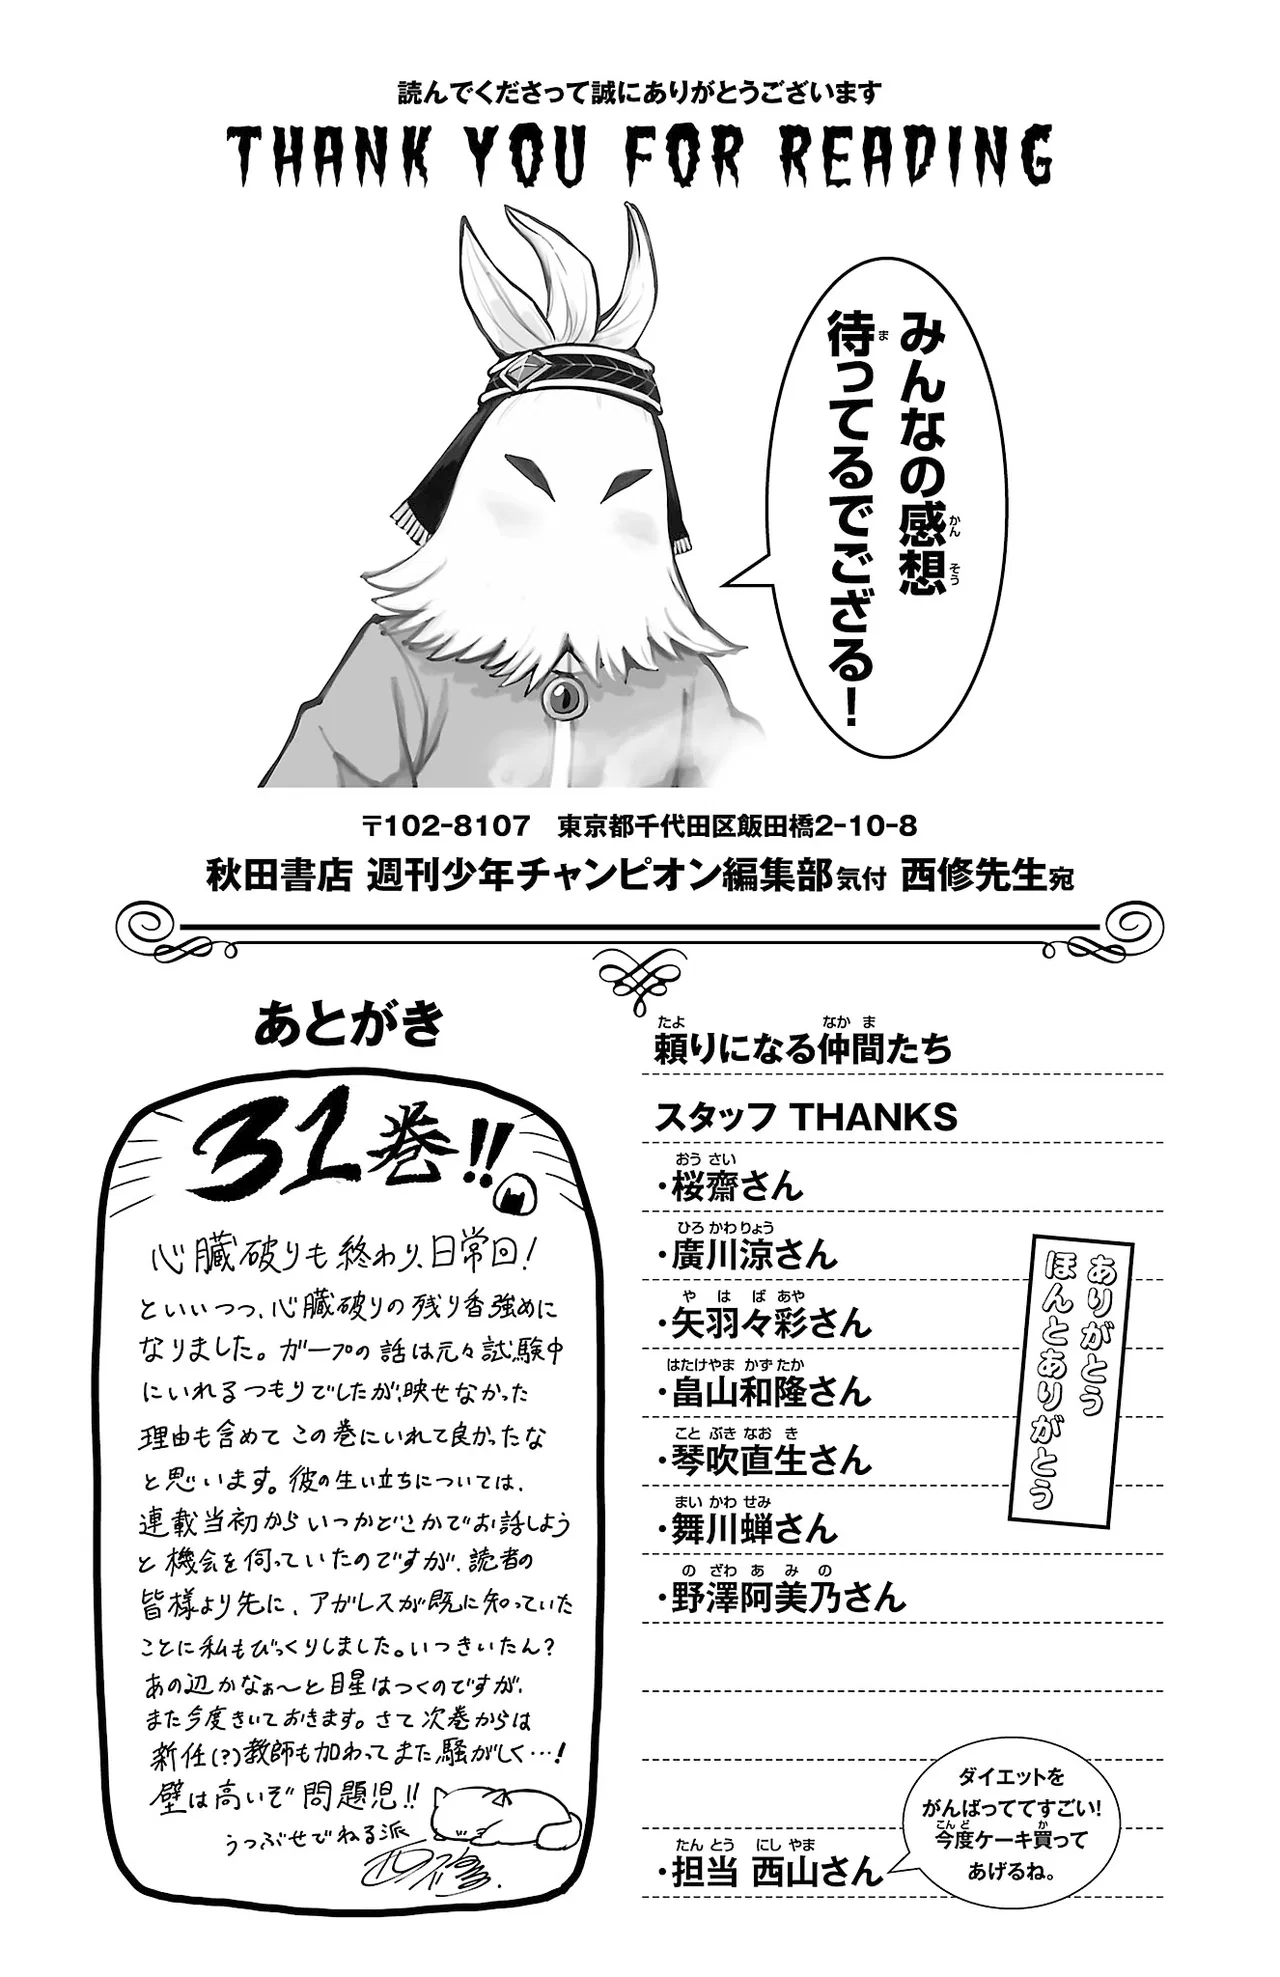 読んでくださって誠にありがとうございます
THANK YOU FOR READING
みんなの感想
かんそう
待ってるでござる!
ま
〒102-8107 東京都千代田区飯田橋2-10-8
秋田書店 週刊少年チャンピオン編集部気付 西修先生宛
あとがき
31巻!!
心臓破りも終わり、日常回!
といいつつ、心臓破りの残り香強めに
なりました。ガープの話は元々試験中
にいれるつもりでしたが、映せなかった
理由も含めてこの巻にいれて良かったな
と思います。彼の生い立ちについては、
連載当初からいつかどこかでお話しよう
と機会を伺っていたのですが、読者の
皆様より先に、アガレスが既に知っていた
ことに私もびっくりしました。いつきいたん?
あの辺かなぁ〜と目星はつくのですが、
また今度きいておきます。さて次巻からは
新任(?)教師も加わってまた騒がしく…!
壁は高いぞ問題児!!
うつぶせでねる派
西修
たよ なかま
頼りになる仲間たち
スタッフ THANKS
おうさい
・桜齋さん
ひろかわりょう
・廣川涼さん
やはばあや
・矢羽々彩さん
はたけやまかずたか
・畠山和隆さん
ことぶきなおき
・琴吹直生さん
まいかわせみ
・舞川蝉さん
のざわあみの
・野澤阿美乃さん
ありがとう
ほんとありがとう
たんとう にしやま
・担当 西山さん
ダイエットを
がんばっててすごい!
こんど か
今度ケーキ買って
あげるね。